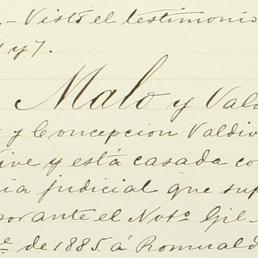 .- Visto el testimonio
1 y 7.
Malo y Vald
y Concepcion Valdiv
ive y está casada co
ia judicial que sup
or ante el Not.º Gil-
e. de 1885. á Romuald